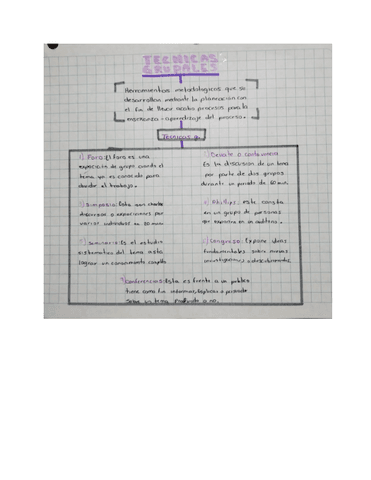 TECNICAS
GRUPALES
Herramientas metodologicas que se
desarrollan mediante la planeacion con
el fin de llevar acabo procesos para la
enseñanza - aprendizaje del proceso.
Tecnicas g.
1) Foro: El foro es una
exposicion de grupo cuando el
tema ya es conocido para
abordar el trabajo.
Simposio: Esta que charlas
discursos o exposiciones por
varios individuos se 50 min.
Seminario: Es el estudio
sistematico del tema esta
lograr un conocimiento completo
Devate o
Es la discusion de un tema
por parte de dos grupos
durante un periodo de 60 min.
Phillips: este consta
en un grupo de personas
que exponen en un auditorio.
Congreso: Expone ideas
fundamentales sobre nuevas
investigaciones o descubrimientos.
Conferencias: Esta es frente a un publico
tiene como fin informar, explicar o persuadir
sobre un tema o no.